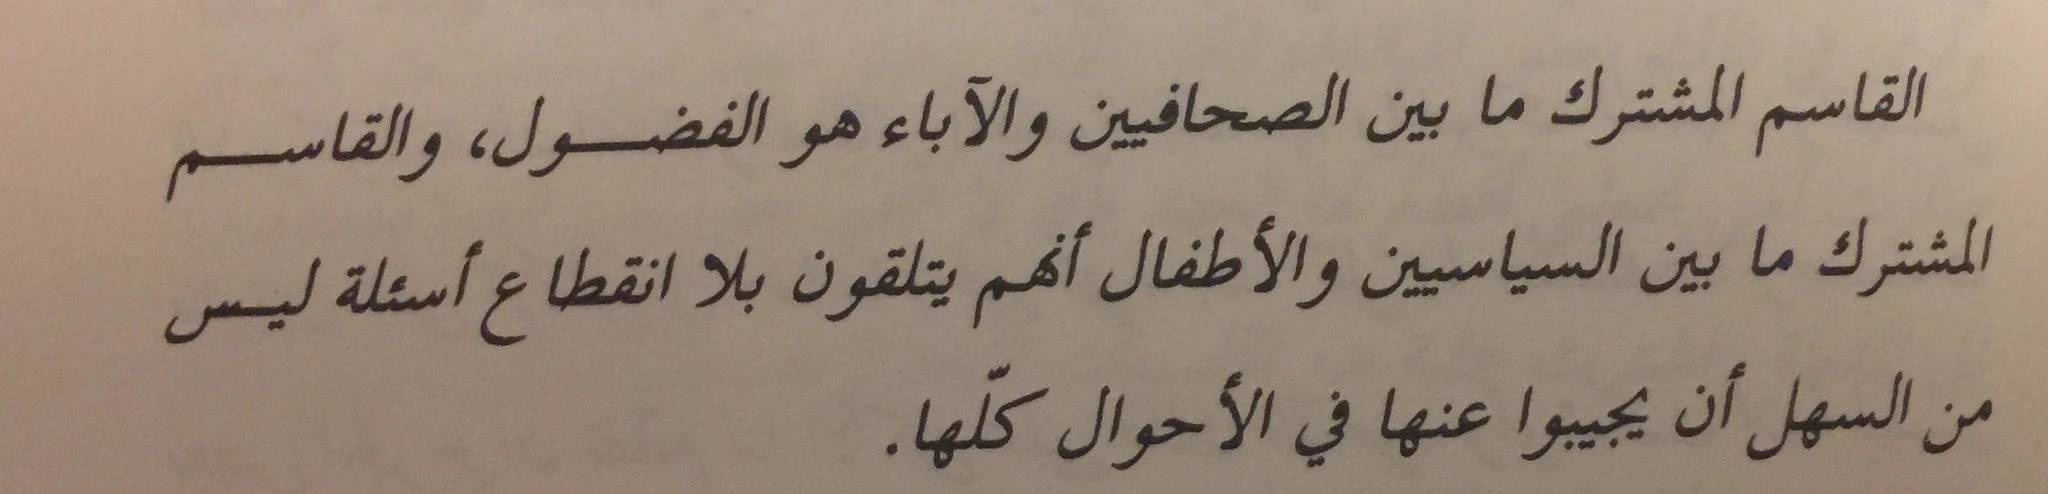 القاسم المشترك ما بين الصحافيين والآباء هو الفضول، والقاسم
المشترك ما بين السياسيين والأطفال أنهم يتلقون بلا انقطاع أسئلة ليس
من السهل أن يجيبوا عنها في الأحوال كلّها.